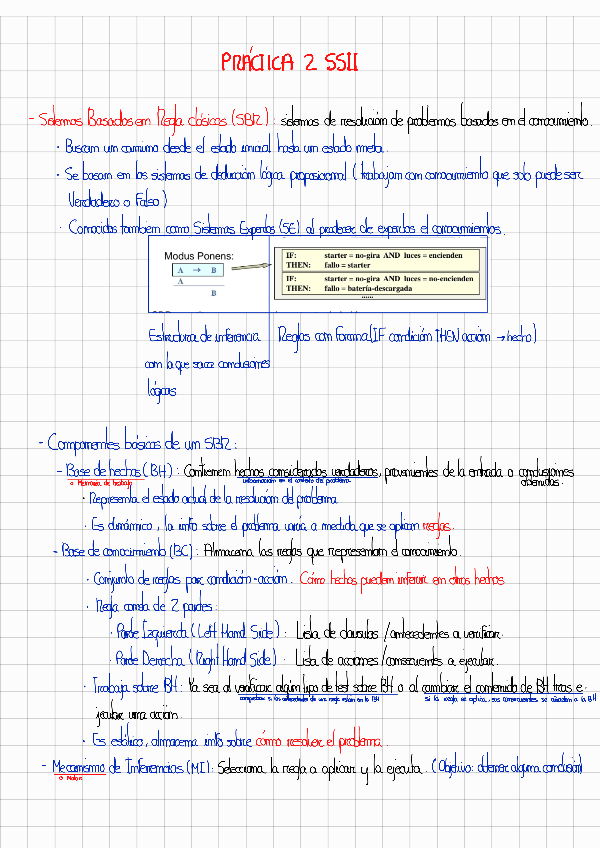 PRÁCTICA 2 SSII
- Sistemas Basados en Regla clásicos (SBR): sistemas de resolución de problemas basados en el conocimiento.
· Buscan un camino desde el estado inicial hasta un estado meta.
· Se basan en los sistemas de deducción lógica proposicional (trabajan con conocimiento que solo puede ser
Verdadero o Falso)
· Conocidos también como Sistemas Expertos (SE) al proceder de expertos el conocimientos.
Modus Ponens:
A → B
A
B
IF: starter = no-gira AND luces = encienden
THEN: fallo = starter
IF: starter = no-gira AND luces = no-encienden
THEN: fallo = batería-descargada
......
Estructura de inferencia
con la que saca conclusiones
lógicas
Reglas con forma (IF condición THEN acción → hecho)
- Componentes básicos de un SBR:
- Base de hechos (BH): Contienen hechos considerados verdaderos, provenientes de la entrada o conclusiones
o Memoria de trabajo
información en el contexto del problema
obtenidas.
· Representa el estado actual de la resolución del problema
· Es dinámico, la info sobre el problema varía a medida que se aplican reglas.
- Base de conocimiento (BC): Almacena las reglas que representan el conocimiento.
· Conjunto de reglas par condición-acción. Cómo hechos pueden inferir en otros hechos
· Regla consta de 2 partes:
· Parte Izquierda (Left Hand Side): Lista de clausulas /antecedentes a verificar.
· Parte Derecha (Right Hand Side): Lista de acciones /consecuentes a ejecutar.
· Trabaja sobre BH: Ya sea al verificar algún tipo de test sobre BH o al cambiar el contenido de BH tras e-
comprobar si los antecedentes de una regla están en la BH
si la regla se aplica, sus consecuentes se añaden a la BH
jecutar una acción.
· Es estático, almacena info sobre cómo resolver el problema.
- Mecanismo de Inferencias (MI): Selecciona la regla a aplicar y la ejecuta. (Objetivo: obtener alguna conclusión)
o Motor